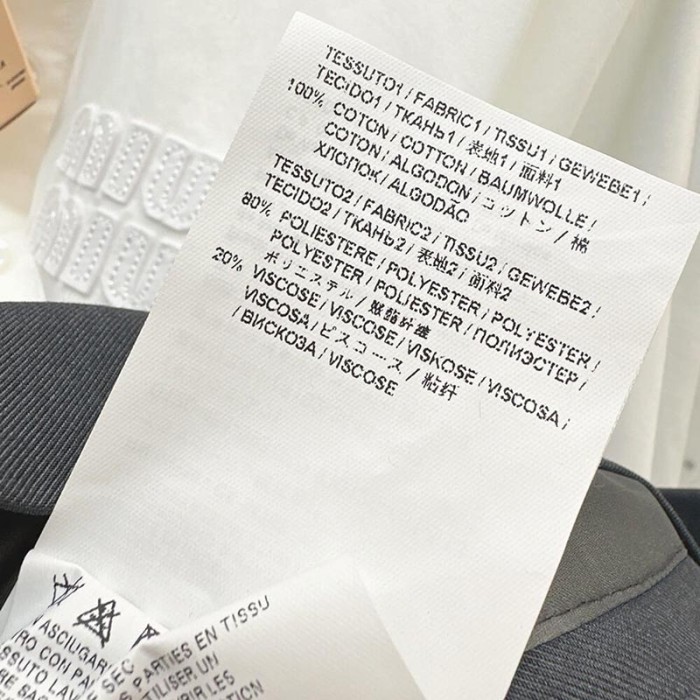 MIU
MIU
TESSUTO1 / FABRIC1 / TISSU1 / GEWEBE1 /
TECIDO1 / ТКАНЬ1 / 表地1 / 面料1
100% COTON / COTTON / BAUMWOLLE /
COTON / ALGODON / コットン / 棉
ХЛОПОК / ALGODÃO
TESSUTO2 / FABRIC2 / TISSU2 / GEWEBE2 /
TECIDO2 / ТКАНЬ2 / 表地2 / 面料2
80% POLIESTERE / POLYESTER / POLYESTER /
POLYESTER / POLIESTER / ПОЛИЭСТЕР /
ポリエステル / 聚酯纤维
20% VISCOSE / VISCOSE / VISKOSE / VISCOSA /
VISCOSA / ビスコース / 粘纤
/ ВИСКОЗА / VISCOSE
ASCIUGAR
RO CON PA
SSUTO LAV
SEC
PARTIES EN TISSU
TILISER UN